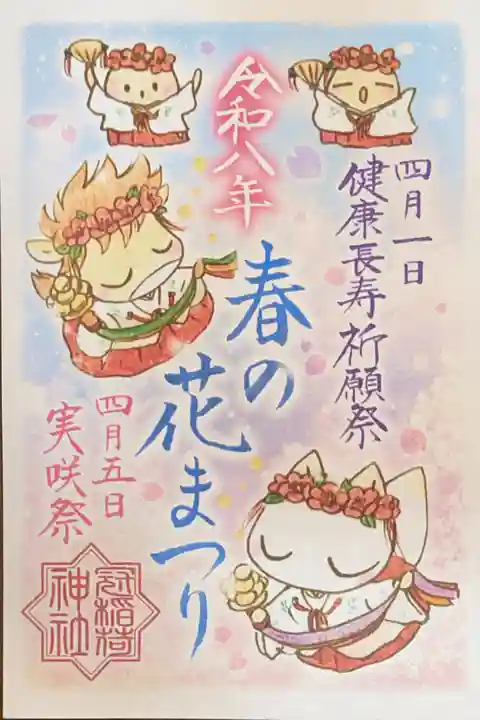 令和八年
四月一日
健康長寿祈願祭
春の
花まつり
四月五日
実咲祭
冠稲荷
神社